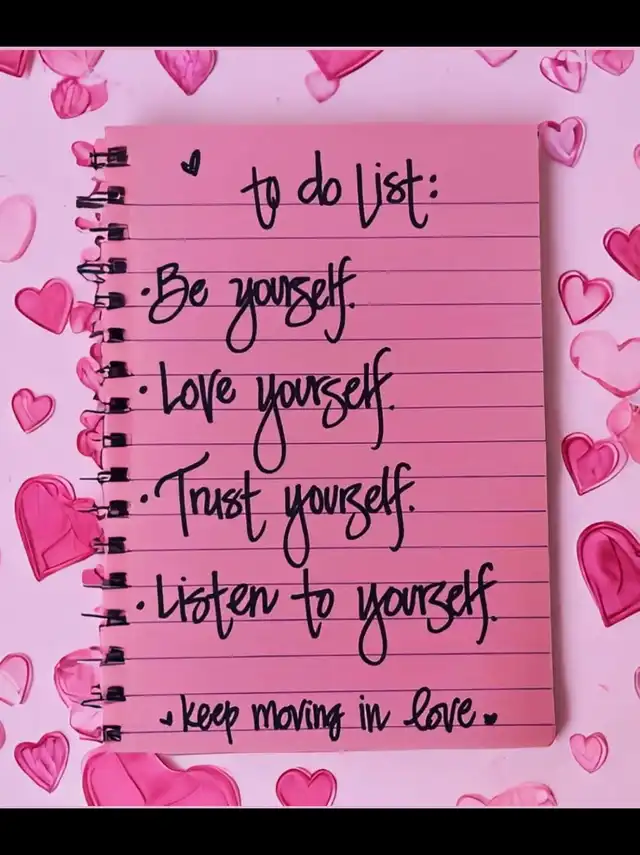 to do list:
· Be yourself.
· Love yourself.
· Trust yourself.
· Listen to yourself.
keep moving in love